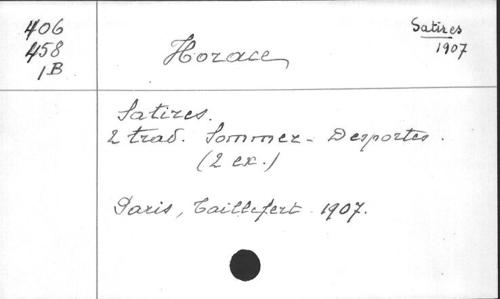 406
458
1B
Horace
Satires
1907
Satires.
2 trad. Sommer - Desportes.
(2 ex.)
Paris, Taillefert 1907.